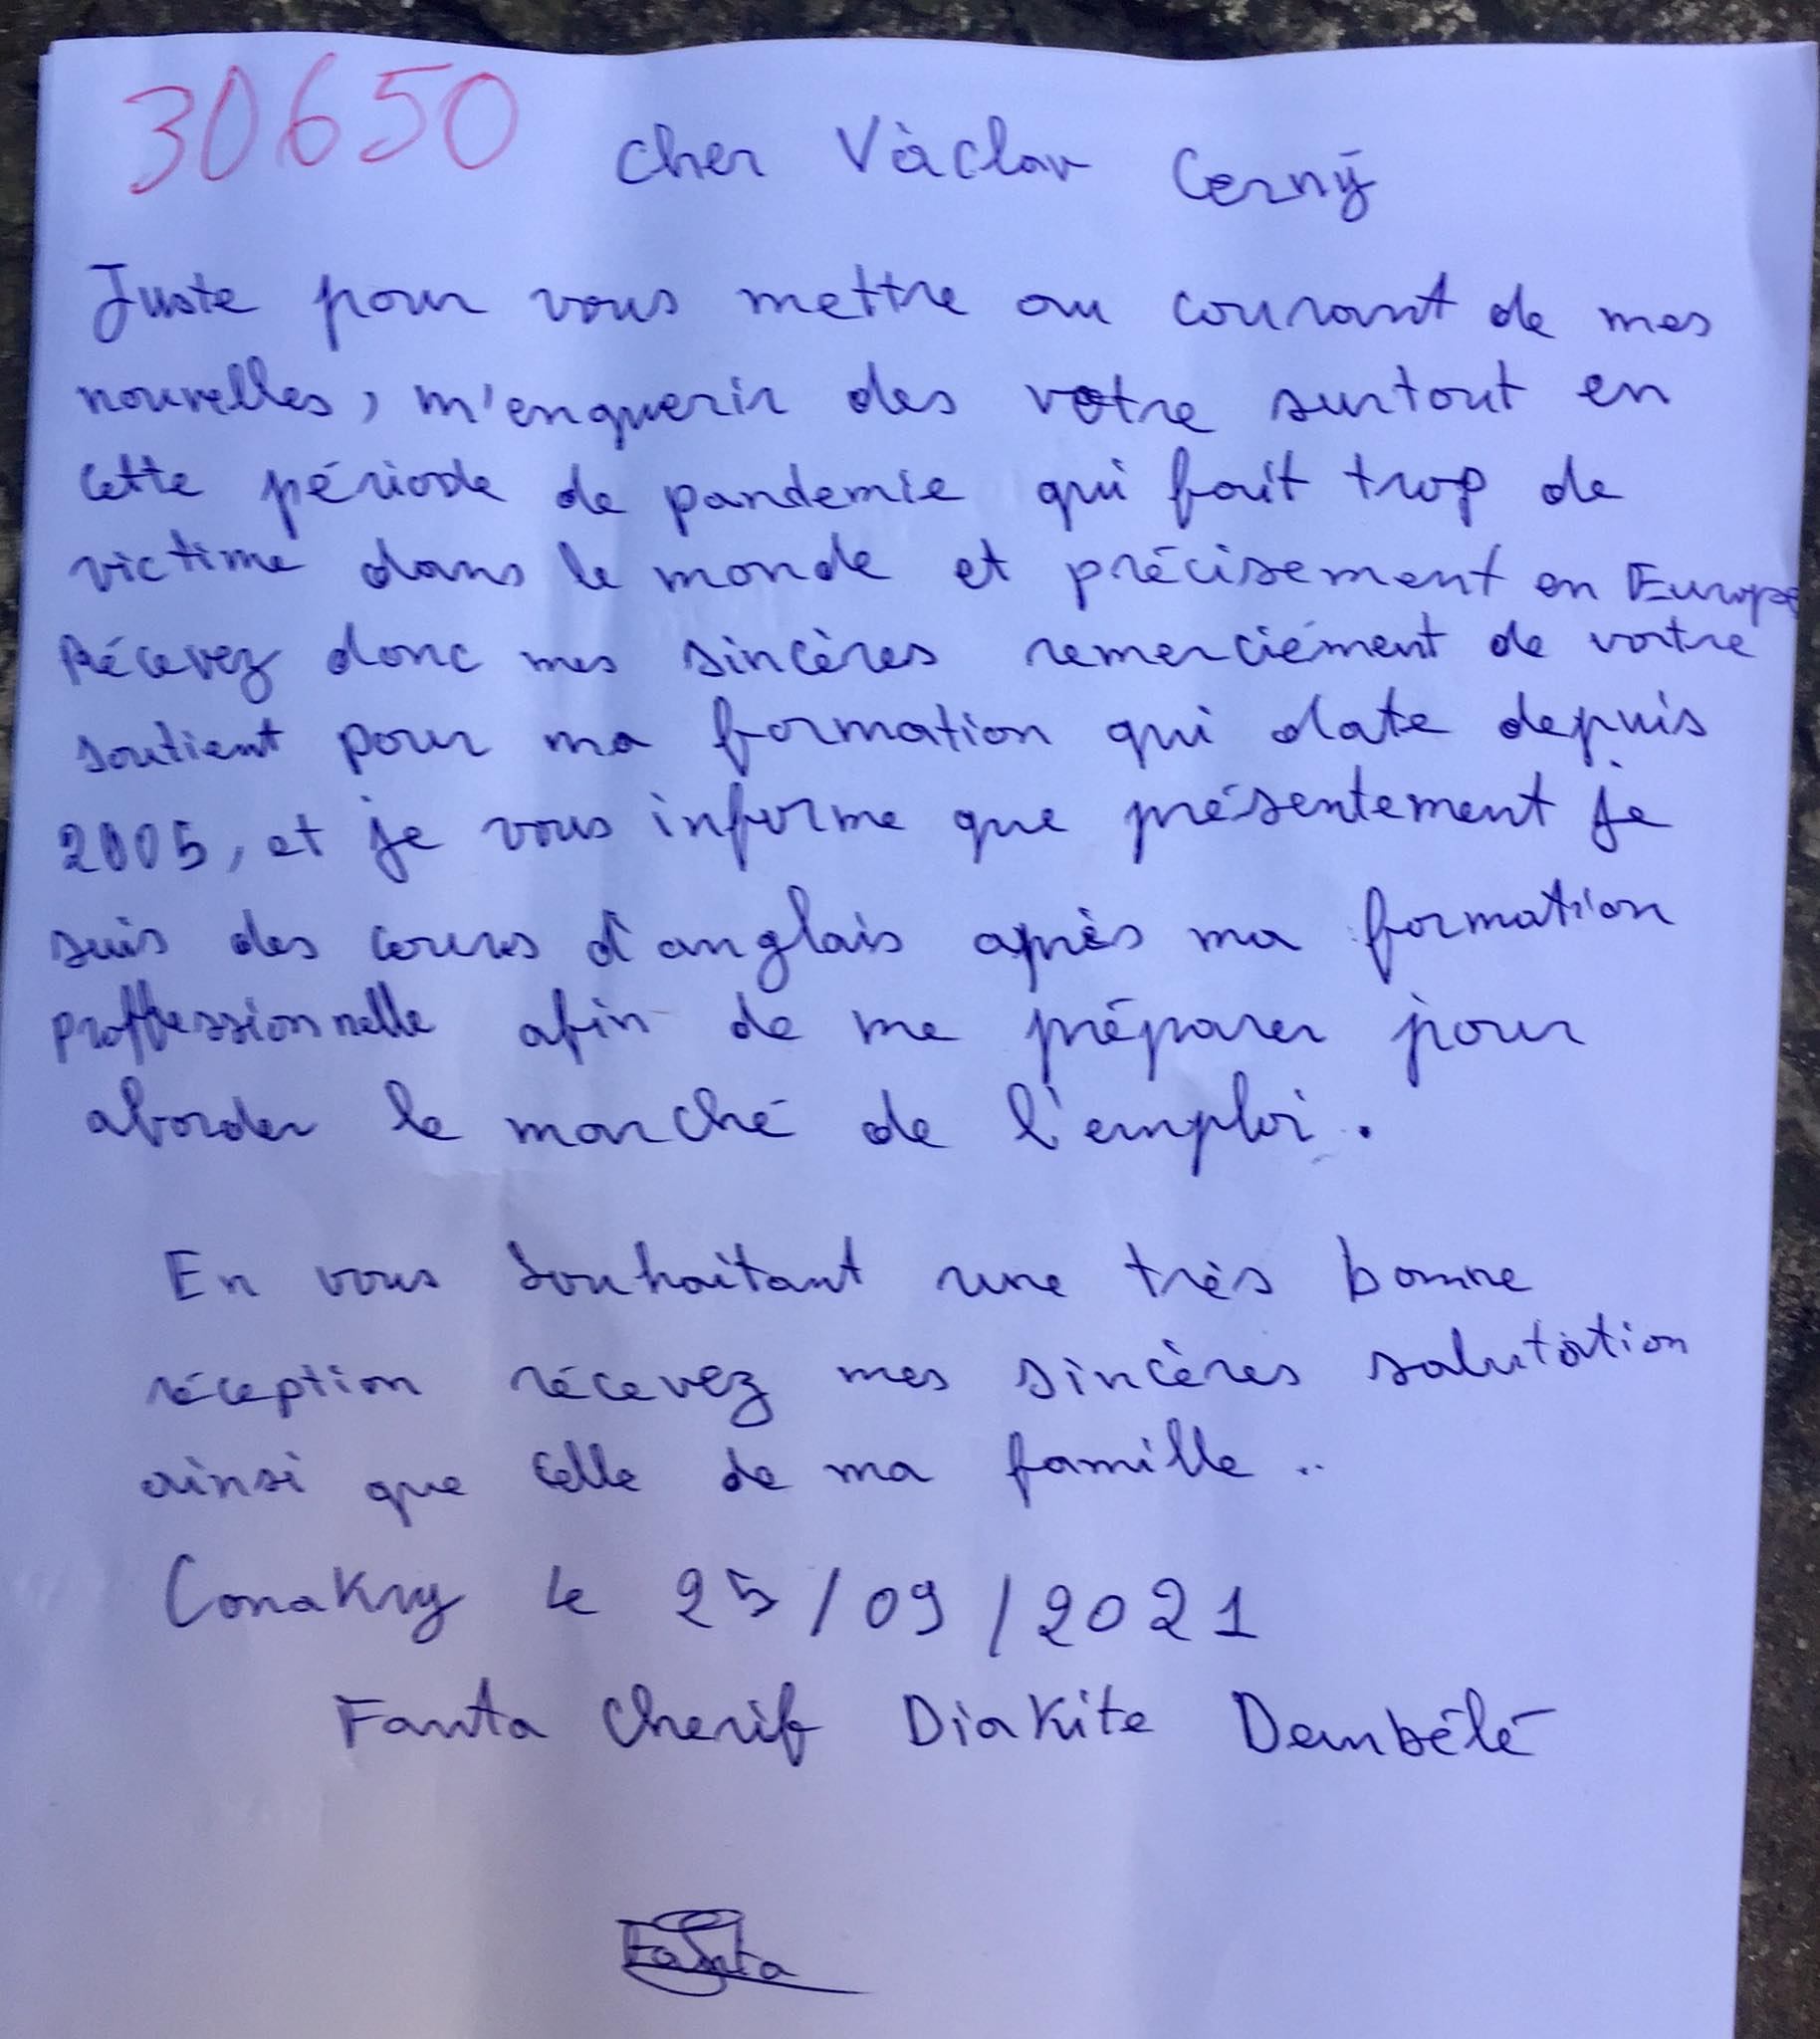 30650
Cher Vàclav Cerný
Juste pour vous mettre au courant de mes
nouvelles, m'enquerir des votre surtout en
cette période de pandemie qui fait trop de
victime dans le monde et précisement en Europe
Récevez donc mes sincères remerciément de votre
soutient pour ma formation qui date depuis
2005, et je vous informe que présentement je
suis des cours d'anglais après ma formation
proffessionnelle afin de me préparer pour
aborder le marché de l'emploi.
En vous souhaitant une très bonne
réception récevez mes sincères salutation
ainsi que celle de ma famille..
Conakry le 25/09/2021
Fanta Cherif Diakite Dembélé
Fanta